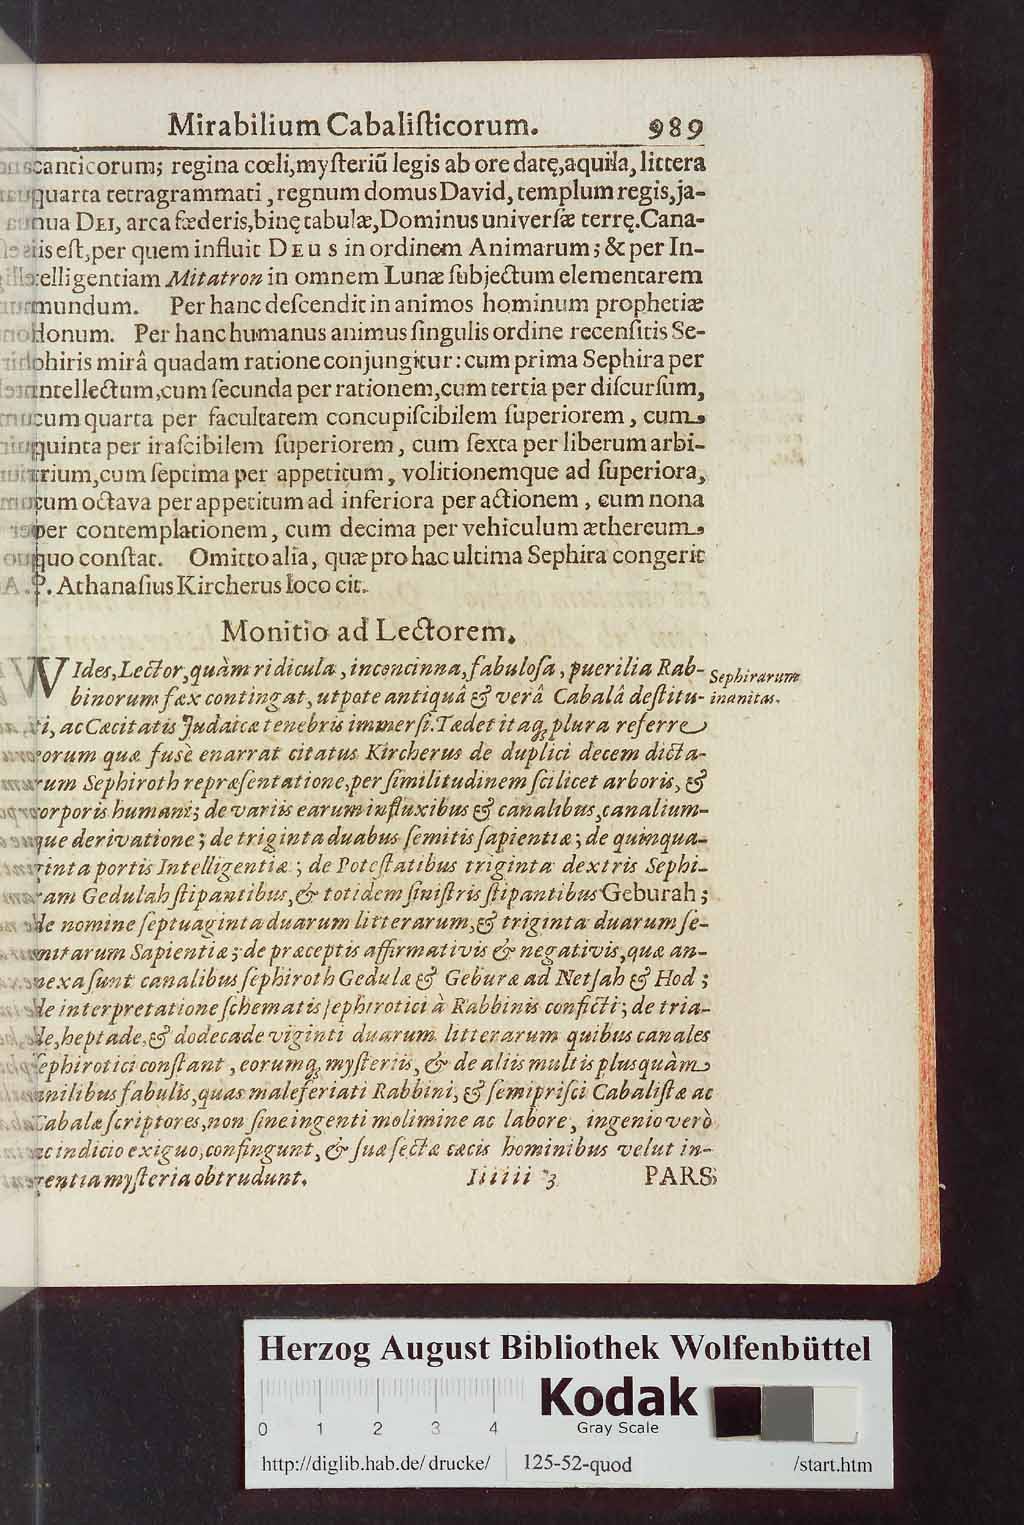 Mirabilium Cabaliſticorum. 989
canticorum; regina cœli, myſteriũ legis ab ore datę, aquila, littera
quarta tetragrammati, regnum domus David, templum regis, ja-
nua DEI, arca fæderis, binę tabulæ, Dominus univerſæ terrę. Cana-
lis eſt, per quem influit DEUS in ordinem Animarum; & per In-
telligentiam Mitatron in omnem Lunæ ſubjectum elementarem
mundum. Per hanc deſcendit in animos hominum prophetiæ
donum. Per hanc humanus animus ſingulis ordine recenſitis Se-
phiris mirâ quadam ratione conjungitur: cum prima Sephira per
intellectum, cum ſecunda per rationem, cum tertia per diſcurſum,
cum quarta per facultatem concupiſcibilem ſuperiorem, cum
quinta per iraſcibilem ſuperiorem, cum ſexta per liberum arbi-
trium, cum ſeptima per appetitum, volitionemque ad ſuperiora,
cum octava per appetitum ad inferiora per actionem, cum nona
per contemplationem, cum decima per vehiculum æthereum,
quo conſtat. Omitto alia, quæ pro hac ultima Sephira congerit
P. Athanaſius Kircherus loco cit.
Monitio ad Lectorem.
VIdes, Lector, quàm ridicula, inconcinna, fabuloſa, puerilia Rab-
binorum fæx contingat, utpote antiquâ & verâ Cabalâ deſtitu-
ti, ac Cæcitatis Judaicæ tenebris immerſi. Tædet itaq; plura referre
eorum quæ fusè enarrat citatus Kircherus de duplici decem dicta-
rum Sephiroth repræſentatione, per ſimilitudinem ſcilicet arboris, &
corporis humani; de variis earum influxibus & canalibus, canalium-
que derivatione; de triginta duabus ſemitis ſapientiæ; de quinqua-
ginta portis Intelligentiæ; de Poteſtatibus triginta dextris Sephi-
ram Gedulah ſtipantibus, & totidem ſiniſtris ſtipantibus Geburah;
de nomine ſeptuaginta duarum litterarum, & triginta duarum ſe-
mitarum Sapientiæ; de præceptis affirmativis & negativis, quæ an-
nexa ſunt canalibus ſephiroth Gedulæ & Geburæ ad Netſah & Hod;
de interpretatione ſchematis ſephirotici à Rabbinis conficti; de tria-
de, heptade, & dodecade viginti duarum litterarum quibus canales
ſephirotici conſtant, eorumq; myſteriis, & de aliis multis plusquàm
anilibus fabulis, quas maleferiati Rabbini, & ſemipriſci Cabaliſtæ ac
Cabalæ ſcriptores, non ſine ingenti molimine ac labore, ingenio verò
ac indicio exiguo, confingunt, & ſuæ ſectæ cæcis hominibus velut in-
gentia myſteria obtrudunt. Iiiiii 3 PARS
Sephirarum
inanitas.
Herzog August Bibliothek Wolfenbüttel
0 1 2 3 4
Kodak
Gray Scale
http://diglib.hab.de/drucke/ 125-52-quod /start.htm